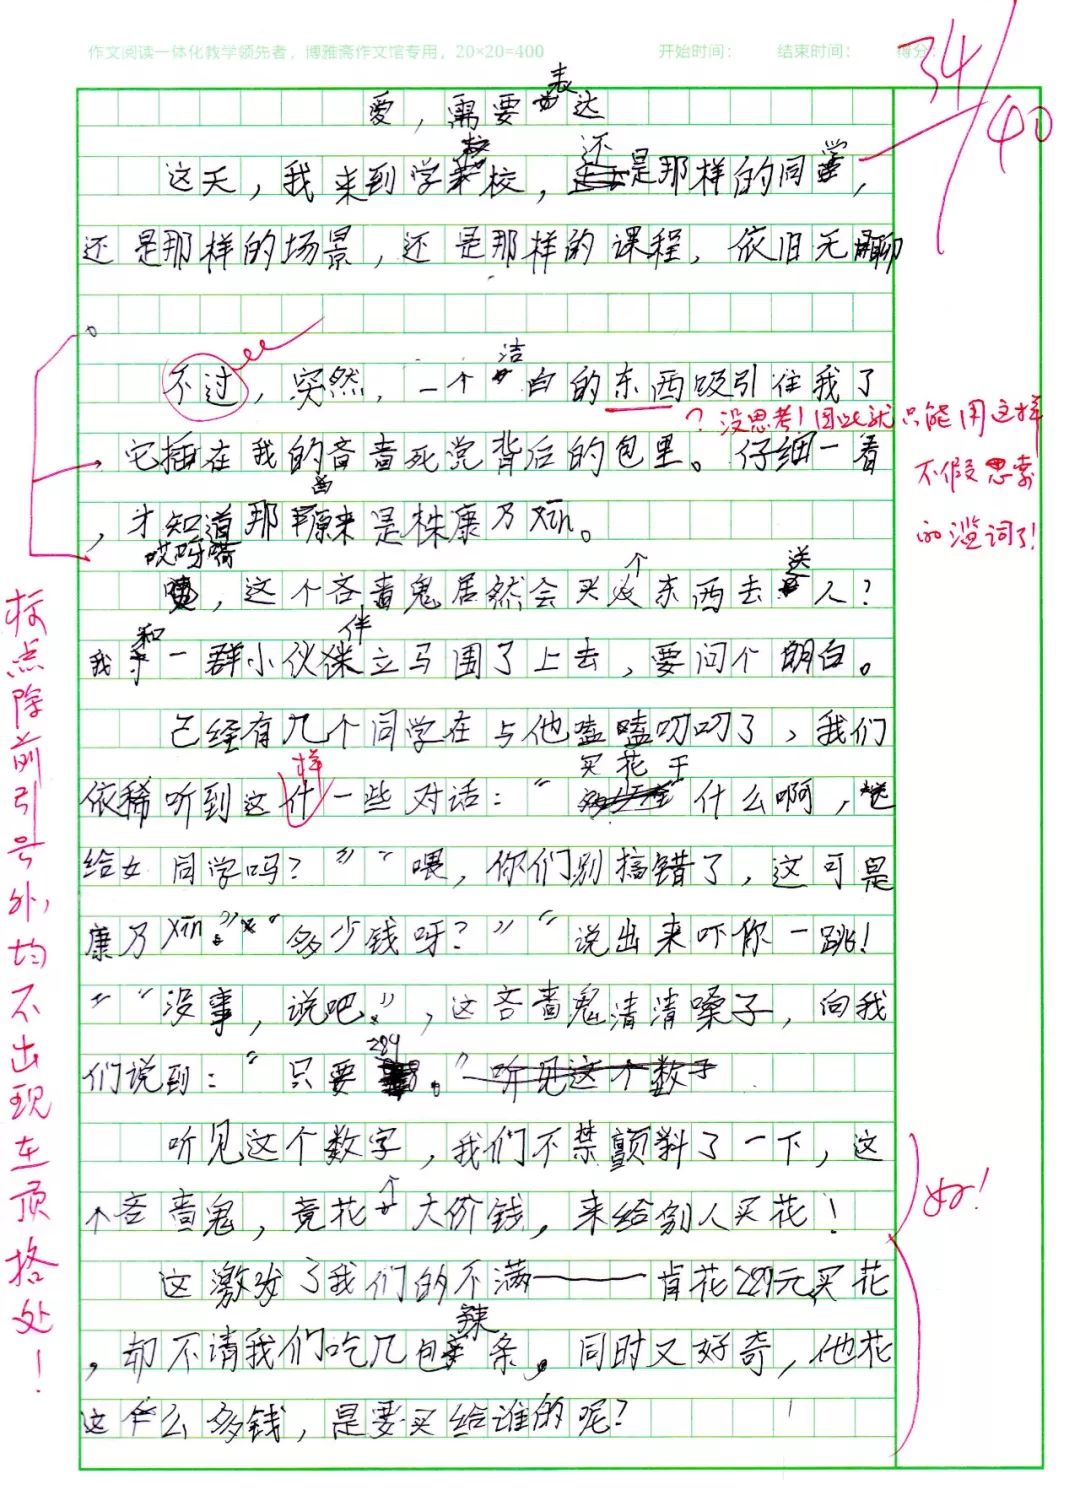 作文阅读一体化教学领先者，博雅斋作文馆专用，20×20=400 开始时间： 结束时间： 得分：
34/40
爱，需要表达
这天，我来到学校，还是那样的同学，
还是那样的场景，还是那样的课程，依旧无聊
。
不过，突然，一个洁白的东西吸引住我了
？没思考！因此就只能用这样
不假思索
的滥词了！
，它插在我的吝啬死党背后的包里。仔细一看
，才知道那原来是株康乃xin。
哎呀嗬，这个吝啬鬼居然会买个东西去送人？
我和一群小伙伴立马围了上去，要问个明白。
已经有几个同学在与他嗑嗑叨叨了，我们
依稀听到这什样一些对话：“买花干什么啊，送
给女同学吗？”“喂，你们别搞错了，这可是
康乃xin。”“多少钱呀？”“说出来吓你一跳！
”“没事，说吧。”，这吝啬鬼清清嗓子，向我
们说到：“只要289。”听见这个数字
听见这个数字，我们不禁颤抖了一下，这
个吝啬鬼，竟花个大价钱，来给别人买花！
好！
这激发了我们的不满——肯花289元买花
，却不请我们吃几包辣条。同时又好奇，他花
这么多钱，是要买给谁的呢？
标点除前引号外，均不出现在顶格处！